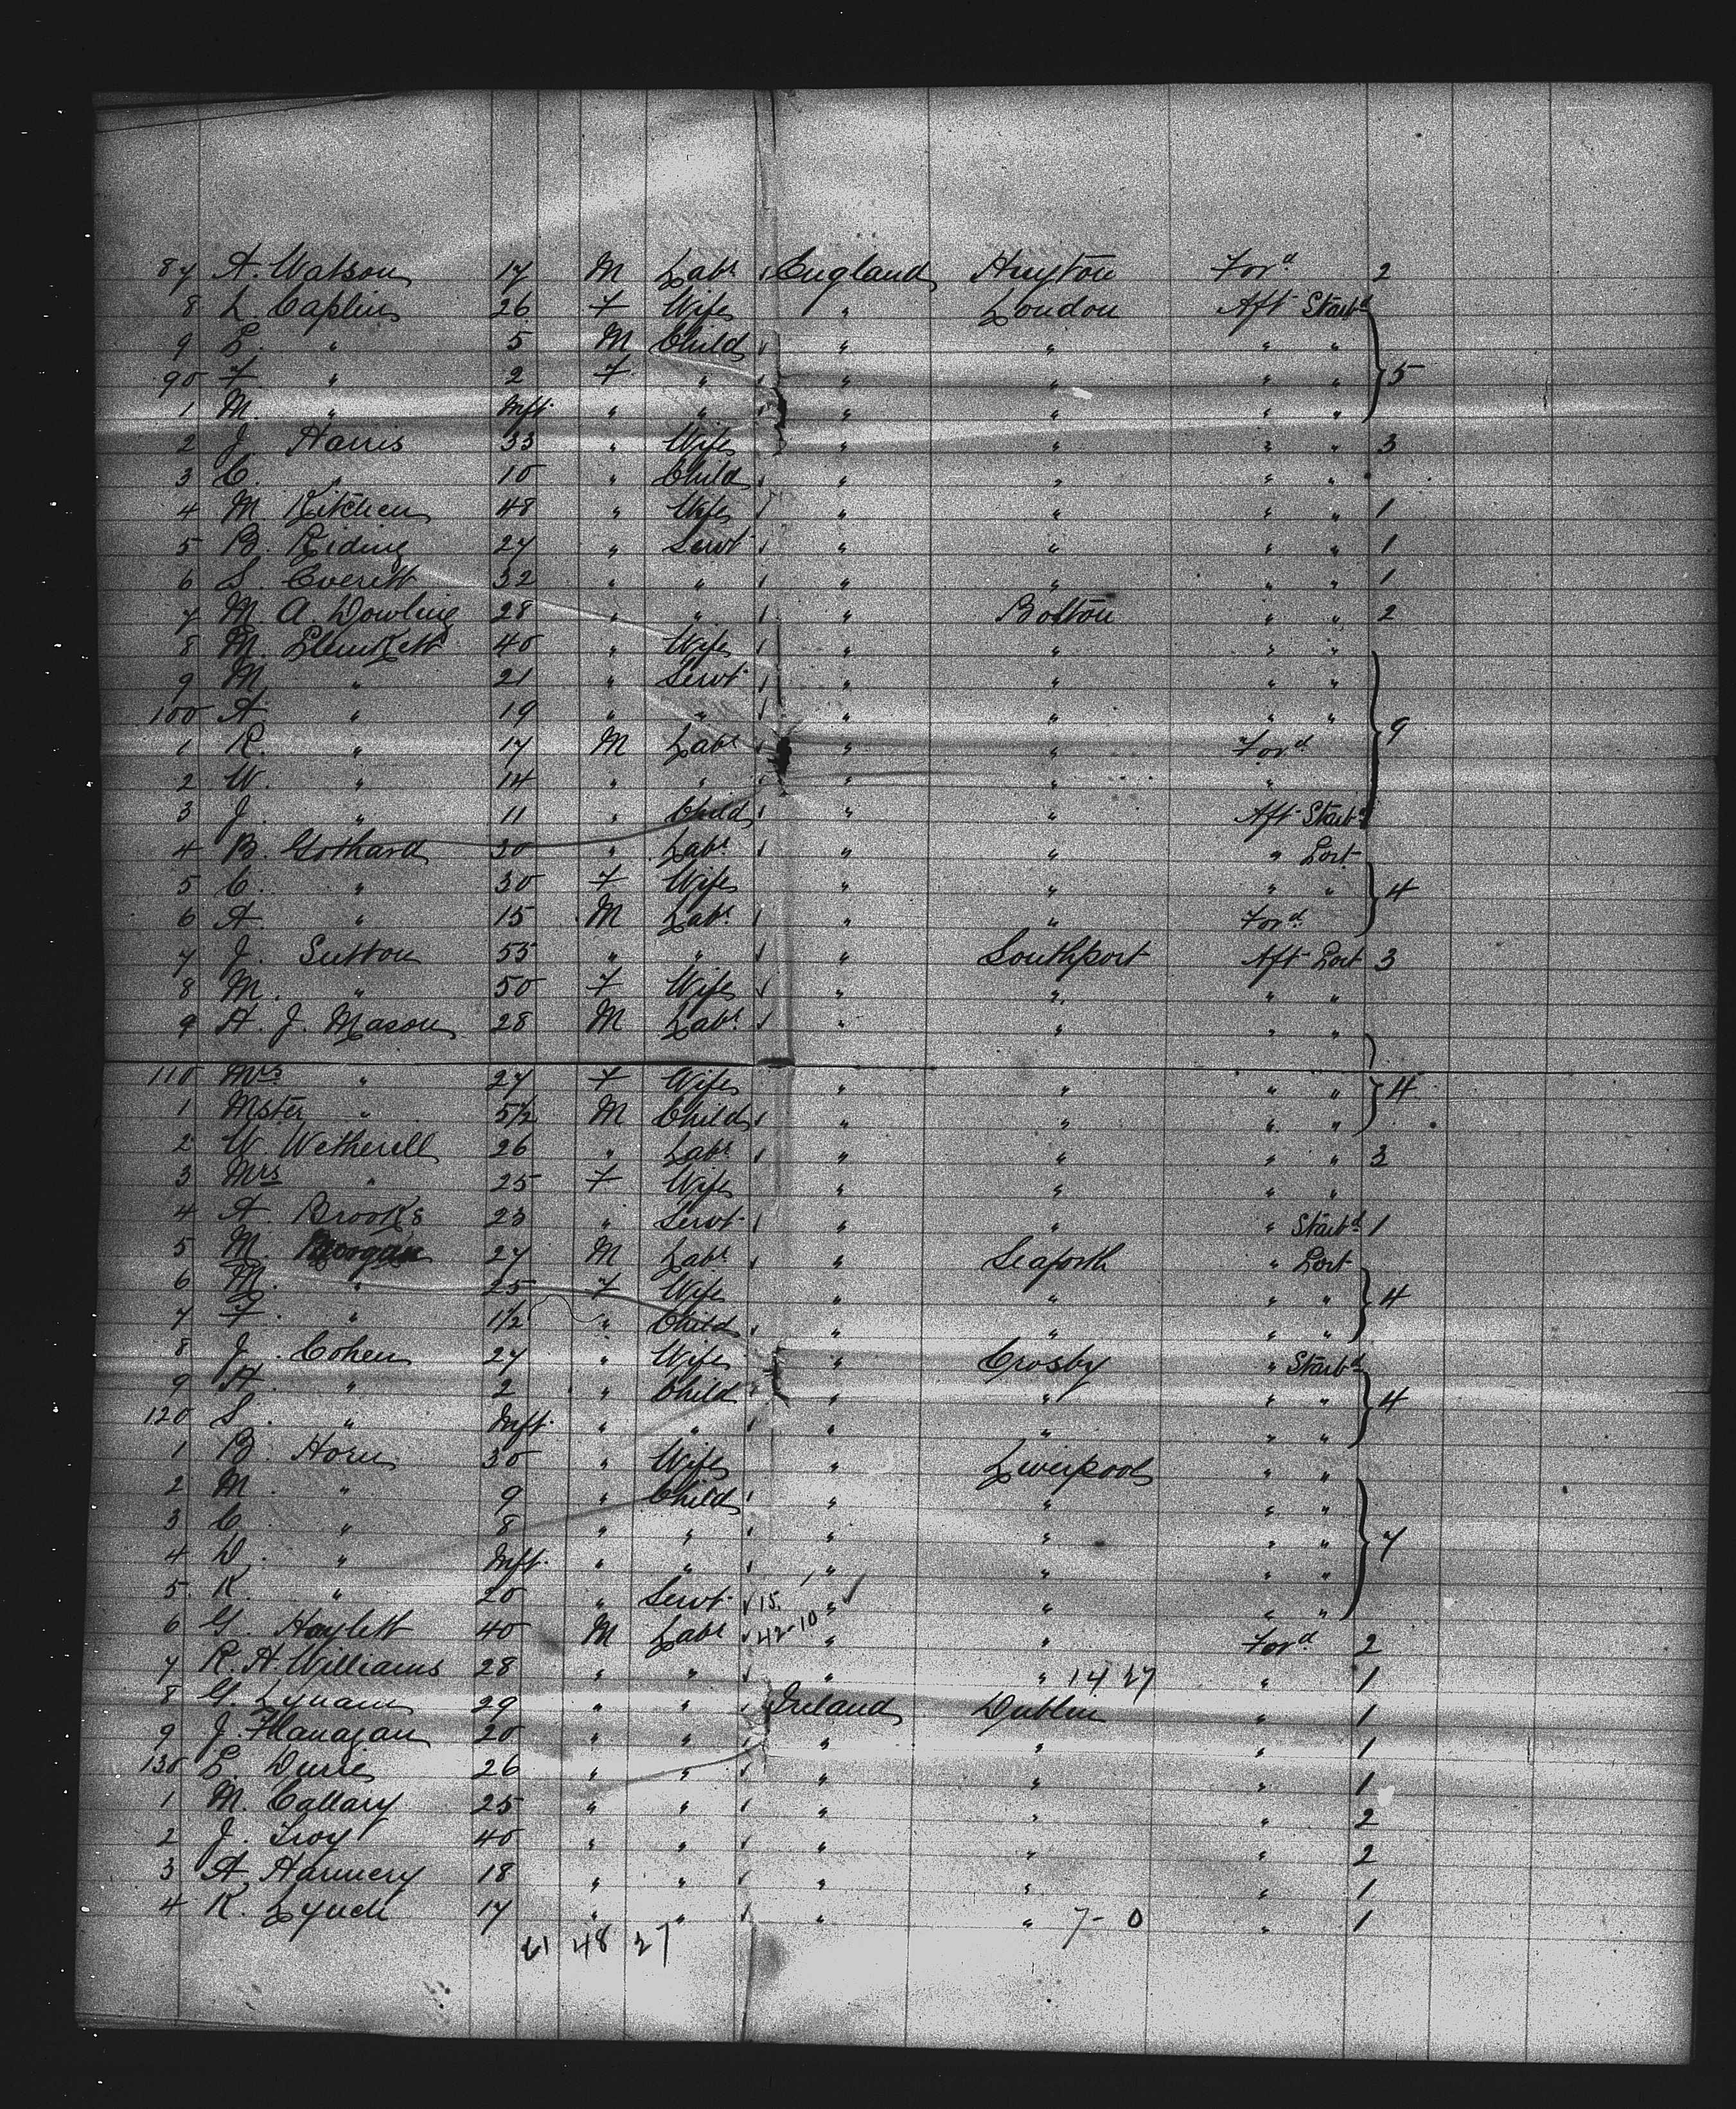 87 A. Watson 17 M Labr England Huyton Ford 2
8 L. Caplin 26 F Wife " London Aft Starbd
9 E. " 5 M Child " " " "
90 F. " 2 F " " " " " 5
1 M. " Inft. " " " " " "
2 J. Harris 33 " Wife " " " " 3
3 C. " 10 " Child " " " "
4 M. Kitchen 48 " Wife " " " " 1
5 B. Riding 27 " Servt " " " " 1
6 S. Everitt 32 " " " " " " 1
7 M. A. Dowling 28 " " " Bolton " " 2
8 M. Plunkett 40 " Wife " " " "
9 M. " 21 " Servt " " " "
100 A. " 19 " " " " " " 9
1 R. " 17 M Labr " " Ford
2 W. " 14 " " " " "
3 J. " 11 " Child " " Aft Starbd
4 B. Gothard 30 " Labr " " " Port
5 C. " 30 F Wife " " " " 4
6 A. " 15 M Labr " " Ford
7 J. Sutton 55 " " " Southport Aft Port 3
8 M. " 50 F Wife " " " "
9 A. J. Mason 28 M Labr " " " "
110 Mrs " 27 F Wife " " " " 4
1 Mster " 5½ M Child " " " "
2 W. Wetherell 26 " Labr " " " " 3
3 Mrs " 25 F Wife " " " "
4 A. Brooks 23 " Servt " " " Starbd 1
5 M. 27 M Labr " Seaforth " Port
6 M. " 25 F Wife " " " " 4
7 F. " 1½ " Child " " " "
8 J. Cohen 27 " Wife " Crosby " Starbd
9 A. " 2 " Child " " " " 4
120 S. " Inft. " " " " " "
1 B. Horn 30 " Wife " Liverpool " "
2 M. " 9 " Child " " " "
3 C. " 8 " " " " " " 7
4 D. " Inft. " " " " " "
5 K. " 20 " Servt 15 " " " "
6 G. Haylett 40 M Labr 42-10 " " Ford 2
7 R. H. Williams 28 " " " " 14 27 " 1
8 G. Lynam 29 " " Ireland Dublin " 1
9 J. Flanagan 20 " " " " " 1
130 E. Durie 26 " " " " " 1
1 M. Callary 25 " " " " " 2
2 J. Troy 40 " " " " " 2
3 A. Hannery 18 " " " " " 1
4 K. Lynch 17 " " " " 7-0 " 1
61 48 27